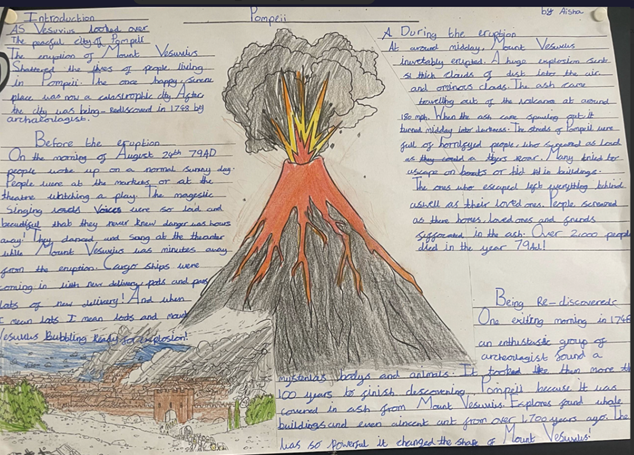 Pompeii
by Aisha
Introduction
As Vesuvius looked over
The peaceful city of Pompeii
The eruption of Mount Vesuvius
Shattered the lives of people living
in Pompeii. The once happy, serene
place was now a catastrophic city. After
the city was being rediscovered in 1748 by
archaeologist.
Before the eruption
On the morning of August 24th 79AD
people woke up on a normal sunny day.
People were at the markets or at the
theatre watching a play. The magestic
singing voices were so loud and
beautiful that they never knew danger was hours
away! They danced and sang at the theatre
while Mount Vesuvius was minutes away
from the eruption. Cargo ships were
coming in with new delivery pots and
lots of new delivery! And when
I mean lots I mean lots and
Vesuvius Bubbling Ready for explosion!
A During the eruption
At around midday, Mount Vesuvius
inevitably erupted. A huge explosion sent
thick clouds of dust into the air
and ominous clouds. The ash came
travelling out of the volcano at around
mph. When the ash came spewing out it
turned midday into darkness. The streets of Pompeii were
full of horrifyed people who screamed as loud
as they could a tigers roar. Many tried to
escape on boats or hid in buildings.
The ones who escaped left everything behind
aswell as their loved ones. People screamed
as there homes, loved ones and friends
suffocated in the ash. Over 2,000 people
died in the year 79Ad!
Being Re-discovered
One exiting morning in 1748
an enthustastic group of
archeologist found a
mysterius bodys and animals. It tooked like then more
100 years to finish descovering Pompeii because it was
covered in ash from Mount Vesuvius. Explores found whole
buildings and even ancient art from over 1,700 years ago. The
was so powerful it changed the shape of Mount Vesuvius.